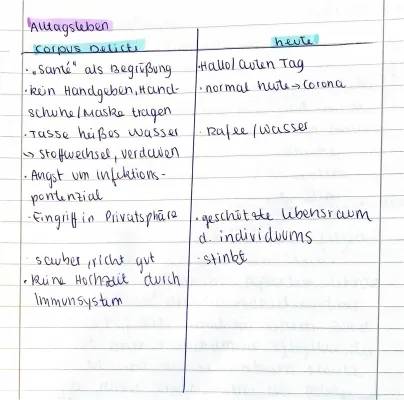 Alltagsleben
Corpus Delicti
heute
· „Santé" als Begrüßung
· Hallo/Guten Tag
· kein Handgeben, Hand-
schuhe/Maske tragen
· normal heute → Corona
· Tasse heißes Wasser
· Kafee/Wasser
↳ Stoffwechsel, verdauen
· Angst um Infektions-
pontenzial
· Eingriff in Privatsphäre
· geschützte lebensraum
d. individuums
sauber, richt gut
· stinkt
· Keine Hochzeit durch
Immunsystem